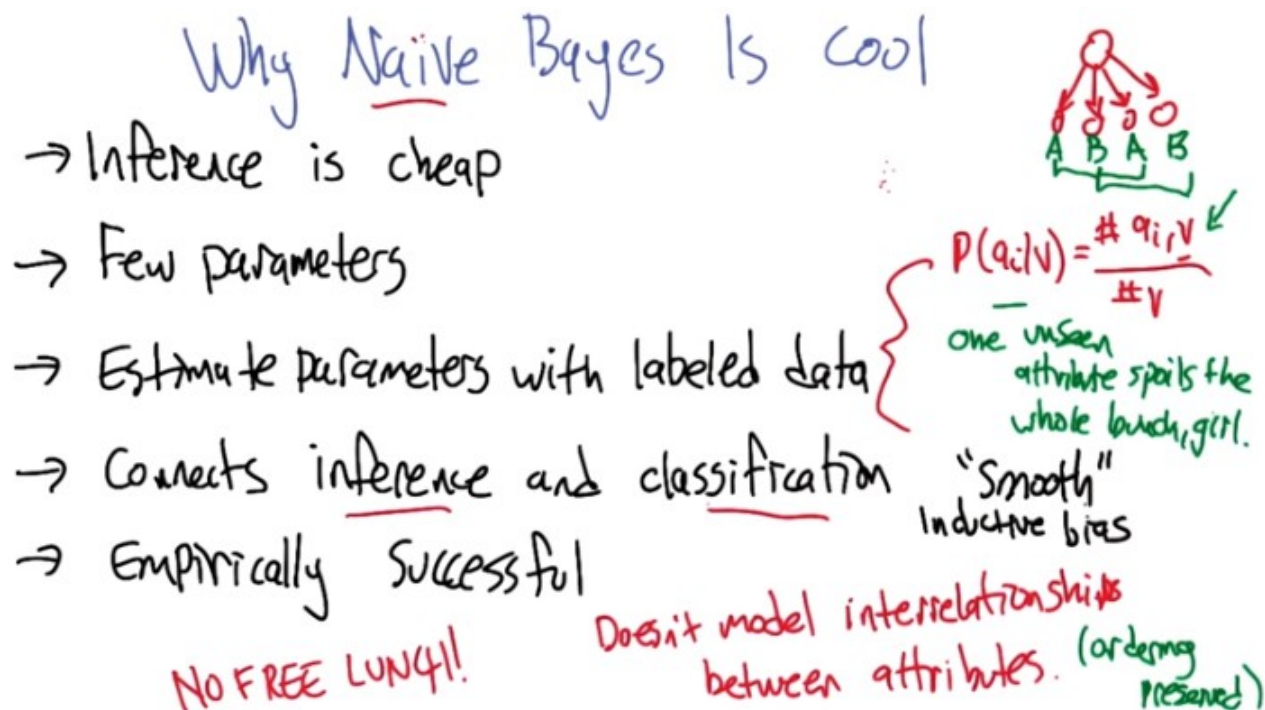 Why Naïve Bayes Is cool
→ Inference is cheap
→ Few parameters
→ Estimate parameters with labeled data
→ Connects inference and classification
→ Empirically successful
NO FREE LUNCH!
A B A B
P(aᵢ|V) = # aᵢ, V / # V
one unseen
attribute spoils the
whole bunch, girl.
"Smooth"
Inductive bias
Doesn't model interrelationships
between attributes. (ordering
preserved)